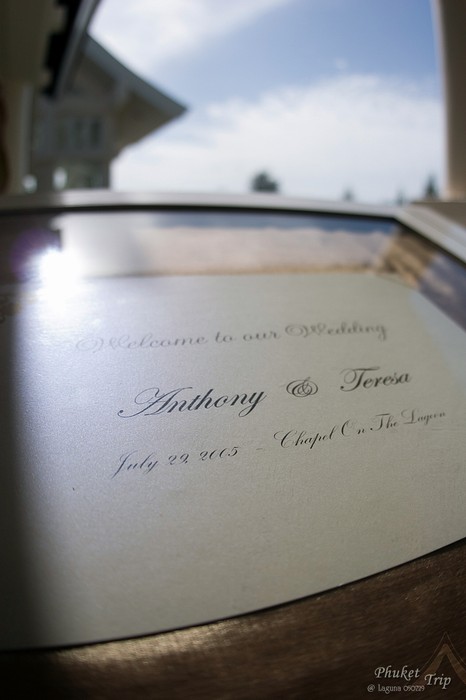 Welcome to our Wedding
Anthony & Teresa
July 29, 2005 – Chapel On The Lagoon
Phuket Trip
@ Laguna 090219